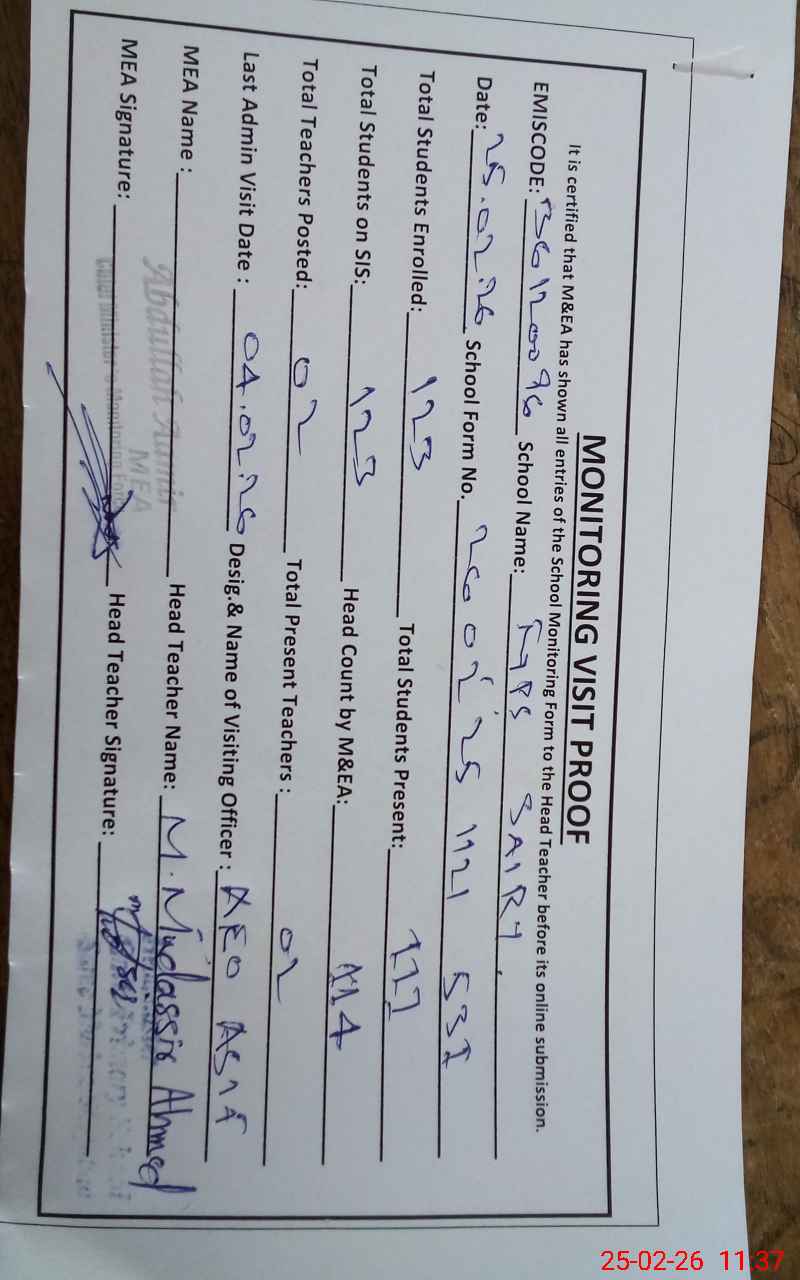 MONITORING VISIT PROOF
It is certified that M&EA has shown all entries of the School Monitoring Form to the Head Teacher before its online submission.
EMISCODE: 36120096 School Name: GPS SAIRY
Date: 25.02.26 School Form No. 260225 1121 531
Total Students Enrolled: 123 Total Students Present: 117
Total Students on SIS: 123 Head Count by M&EA: 114
Total Teachers Posted: 02 Total Present Teachers : 02
Last Admin Visit Date : 04.02.26 Desig.& Name of Visiting Officer : AEO ASIF
MEA Name : Abdullah Amir MEA Head Teacher Name: M. Mudassir Ahmed
MEA Signature: Head Teacher Signature:
25-02-26 11:37